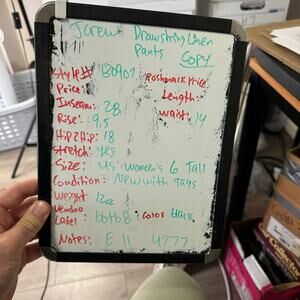 Jcrew Drawstring Linen
Pants COPY
Style# B0907 Poshmark Price:
Price: Length:
Inseam: 28 Waist: 14
Rise: 9.5
Hip2Hip: 18
Stretch: yes
Size: US women's 6 Tall
Condition: New with Tags
Weight 12oz
Vendoo
Label: color black
Notes: E 11 4777